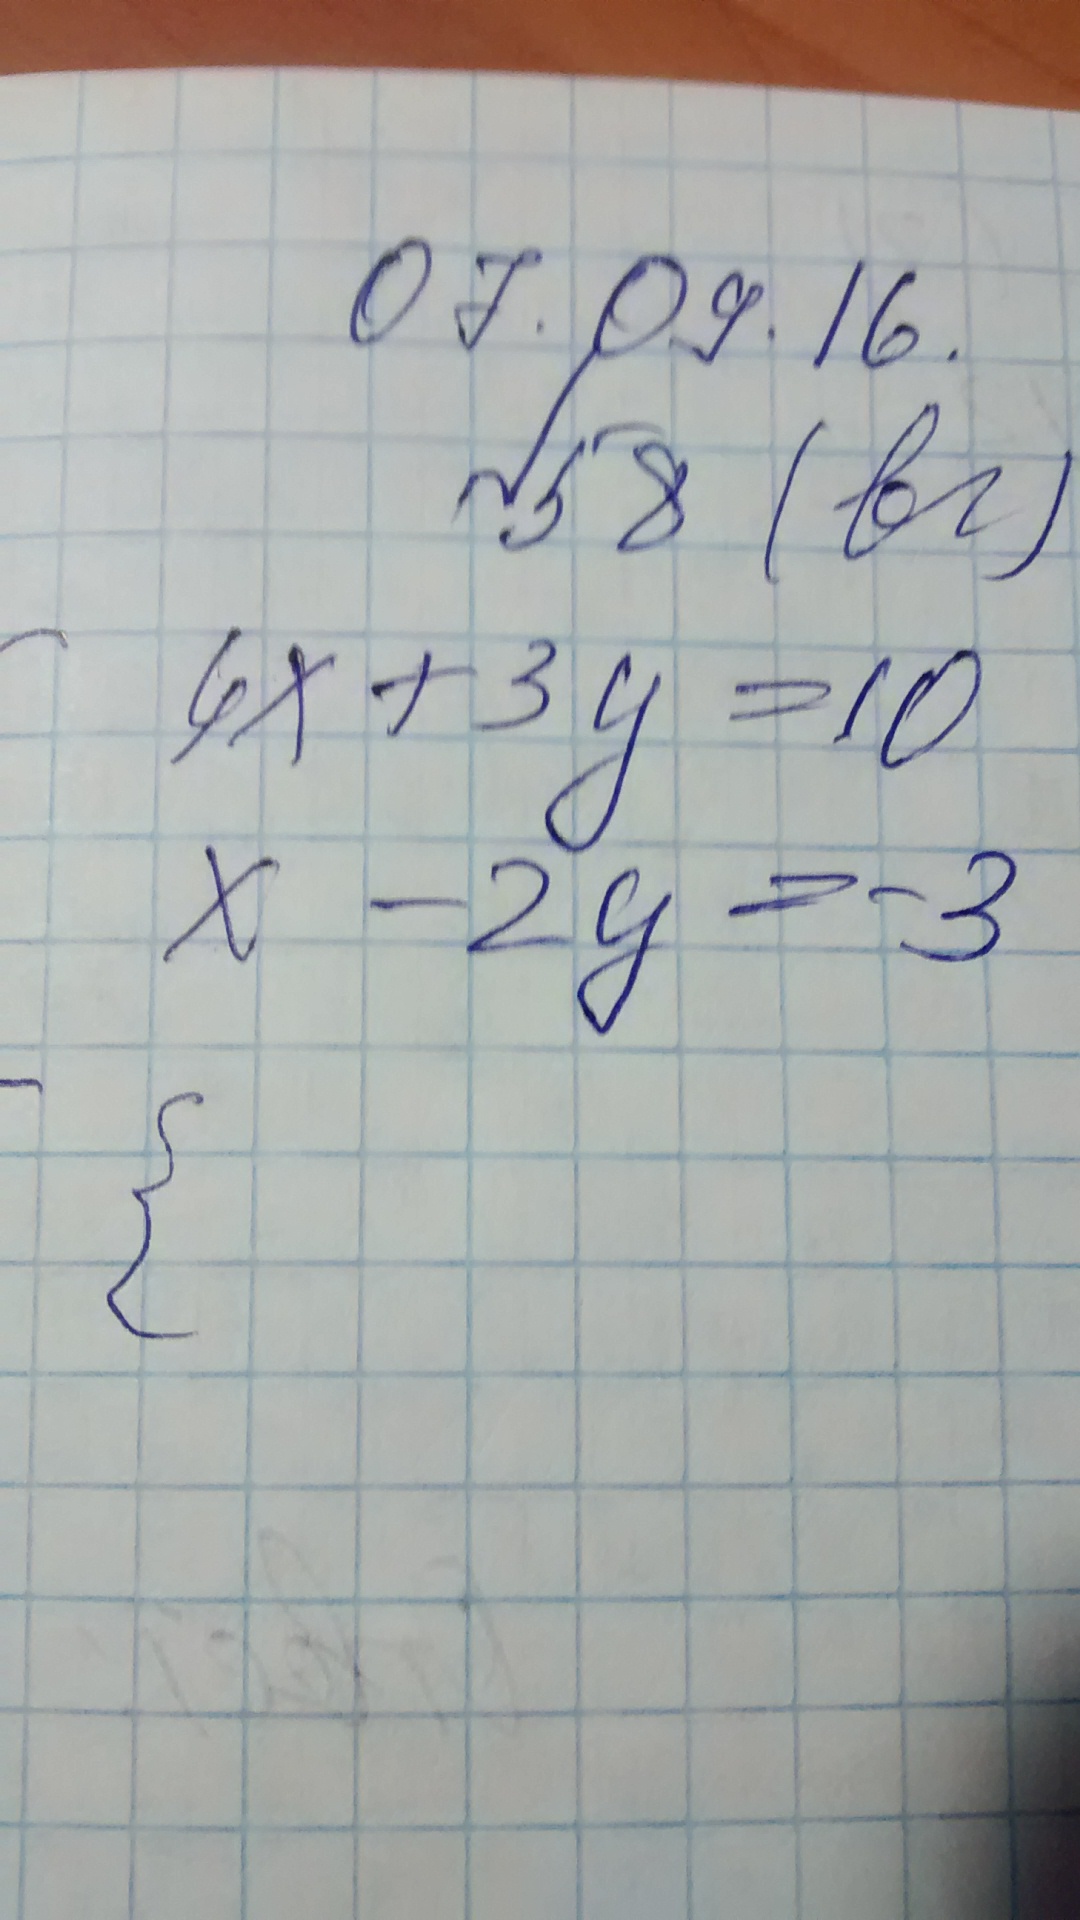 07.09.16.
№58 (вг)
4x + 3y = 10
x - 2y = -3
{